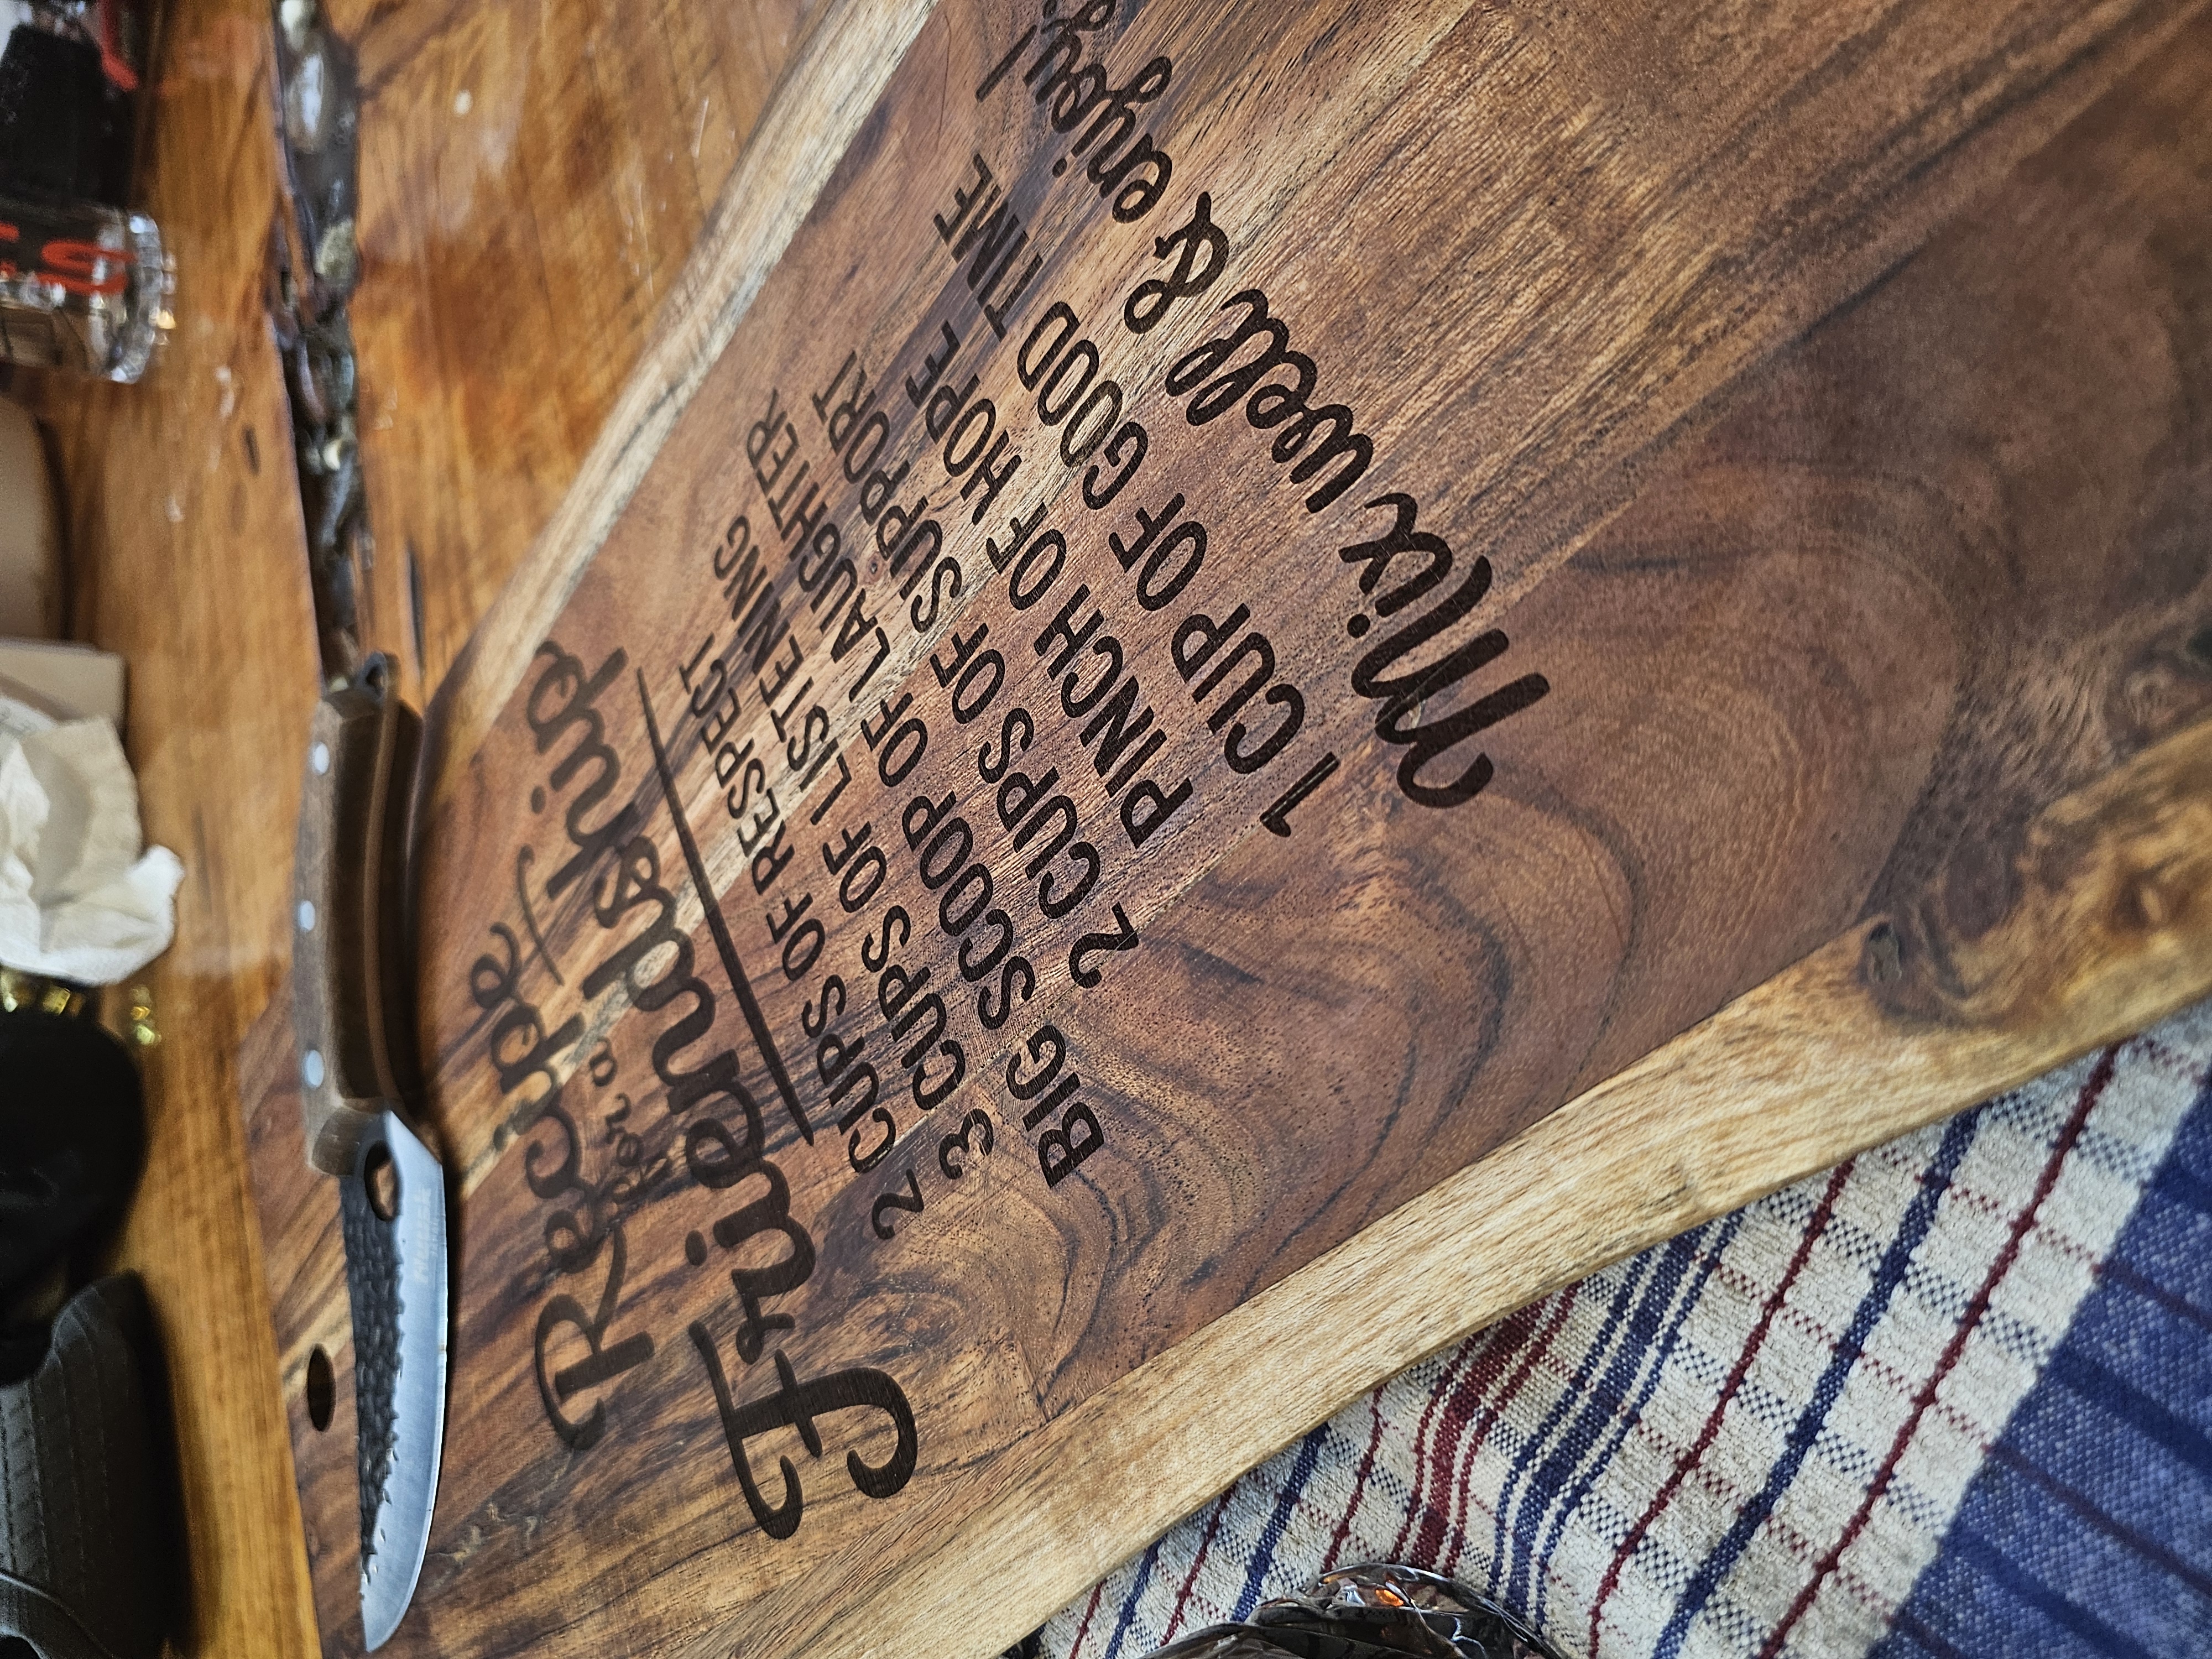 Recipe
for a
Friendship
2 CUPS OF RESPECT
3 CUPS OF LISTENING
BIG SCOOP OF LAUGHTER
2 CUPS OF SUPPORT
PINCH OF HOPE
1 CUP OF GOOD TIME
Mix well & enjoy!